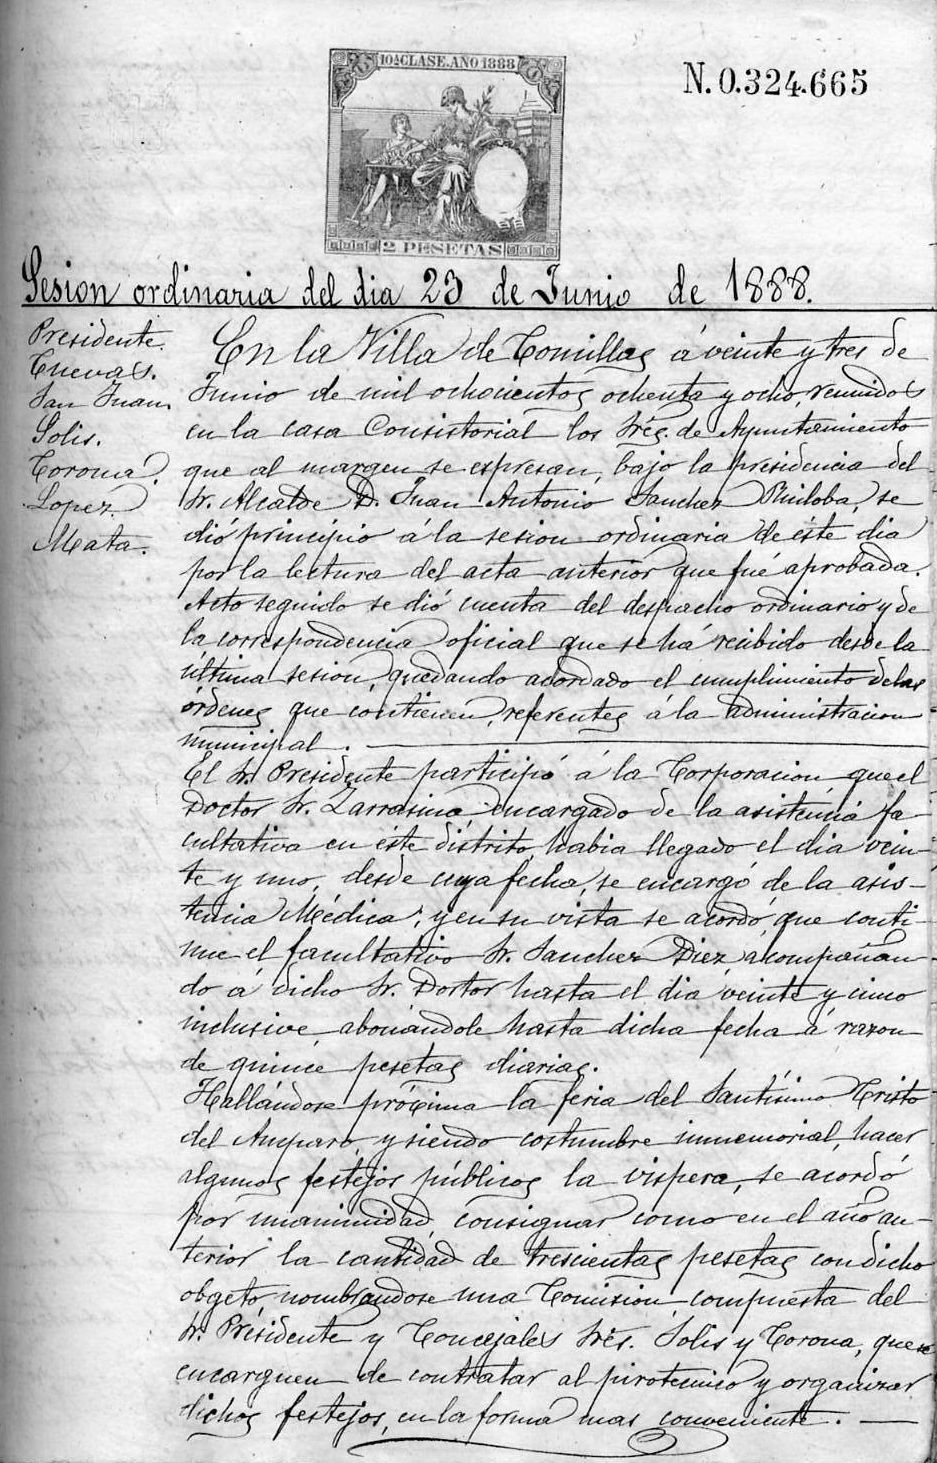 10ª CLASE. AÑO 1888
N. 0.324.665
2 PESETAS
Sesion ordinaria del dia 23 de Junio de 1888.
Presidente.
Cuevas.
San Juan.
Solis.
Corona.
Lopez.
Mata.
En la Villa de Comillas á veinte y tres de
Junio de mil ochocientos ochenta y ocho, reunidos
en la casa Consistorial los Srés. de Ayuntamiento
que al margen se espresan, bajo la presidencia del
Sr. Alcalde D. Juan Antonio Sanchez Ruiloba, se
dió principio á la sesion ordinaria de éste dia
por la lectura del acta anterior que fué aprobada.
Acto seguido se dió cuenta del despacho ordinario y de
la correspondencia oficial que se há recibido desde la
última sesion, quedando acordado el cumplimiento de las
órdenes que contienen, referentes á la administracion
municipal.
El Sr. Presidente participó á la Corporacion que el
Doctor Sr. encargado de la asistencia fa-
cultativa en éste distrito, habia llegado el dia vein-
te y uno, desde cuya fecha, se encargó de la asis-
tencia Médica; y en su vista se acordó, que conti-
nue el facultativo Sr. Sanchez Diez, acompañan-
do á dicho Sr. Doctor hasta el dia veinte y cinco
inclusive abonándole hasta dicha fecha á razon
de quince pesetas diarias.
Hallándose próxima la feria del Santísimo Cristo
del Amparo, y siendo costumbre inmemorial, hacer
algunos festejos públicos la vispera, se acordó
por unanimidad consignar como en el año an-
terior la cantidad de trescientas pesetas con dicho
obgeto, nombrandose una Comision, compuesta del
Sr. Presidente y Concejales Srés. Solis y Corona, que se
encarguen de contratar al pirotecnico y organizar
dichos festejos, en la forma mas conveniente.